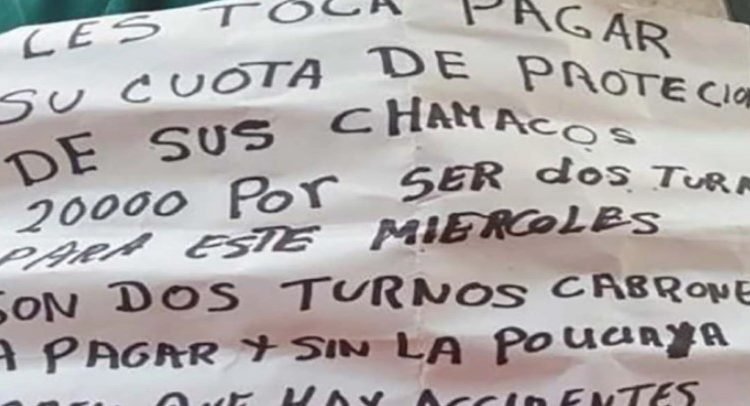 LES TOCA PAGAR
SU CUOTA DE PROTECIO
DE SUS CHAMACOS
20000 POR SER dOS TUR
PARA ESTE MIERCOLES
SON DOS TURNOS CABRONE
A PAGAR Y SIN LA POLICIA YA
QUE HAY ACCIDENTES